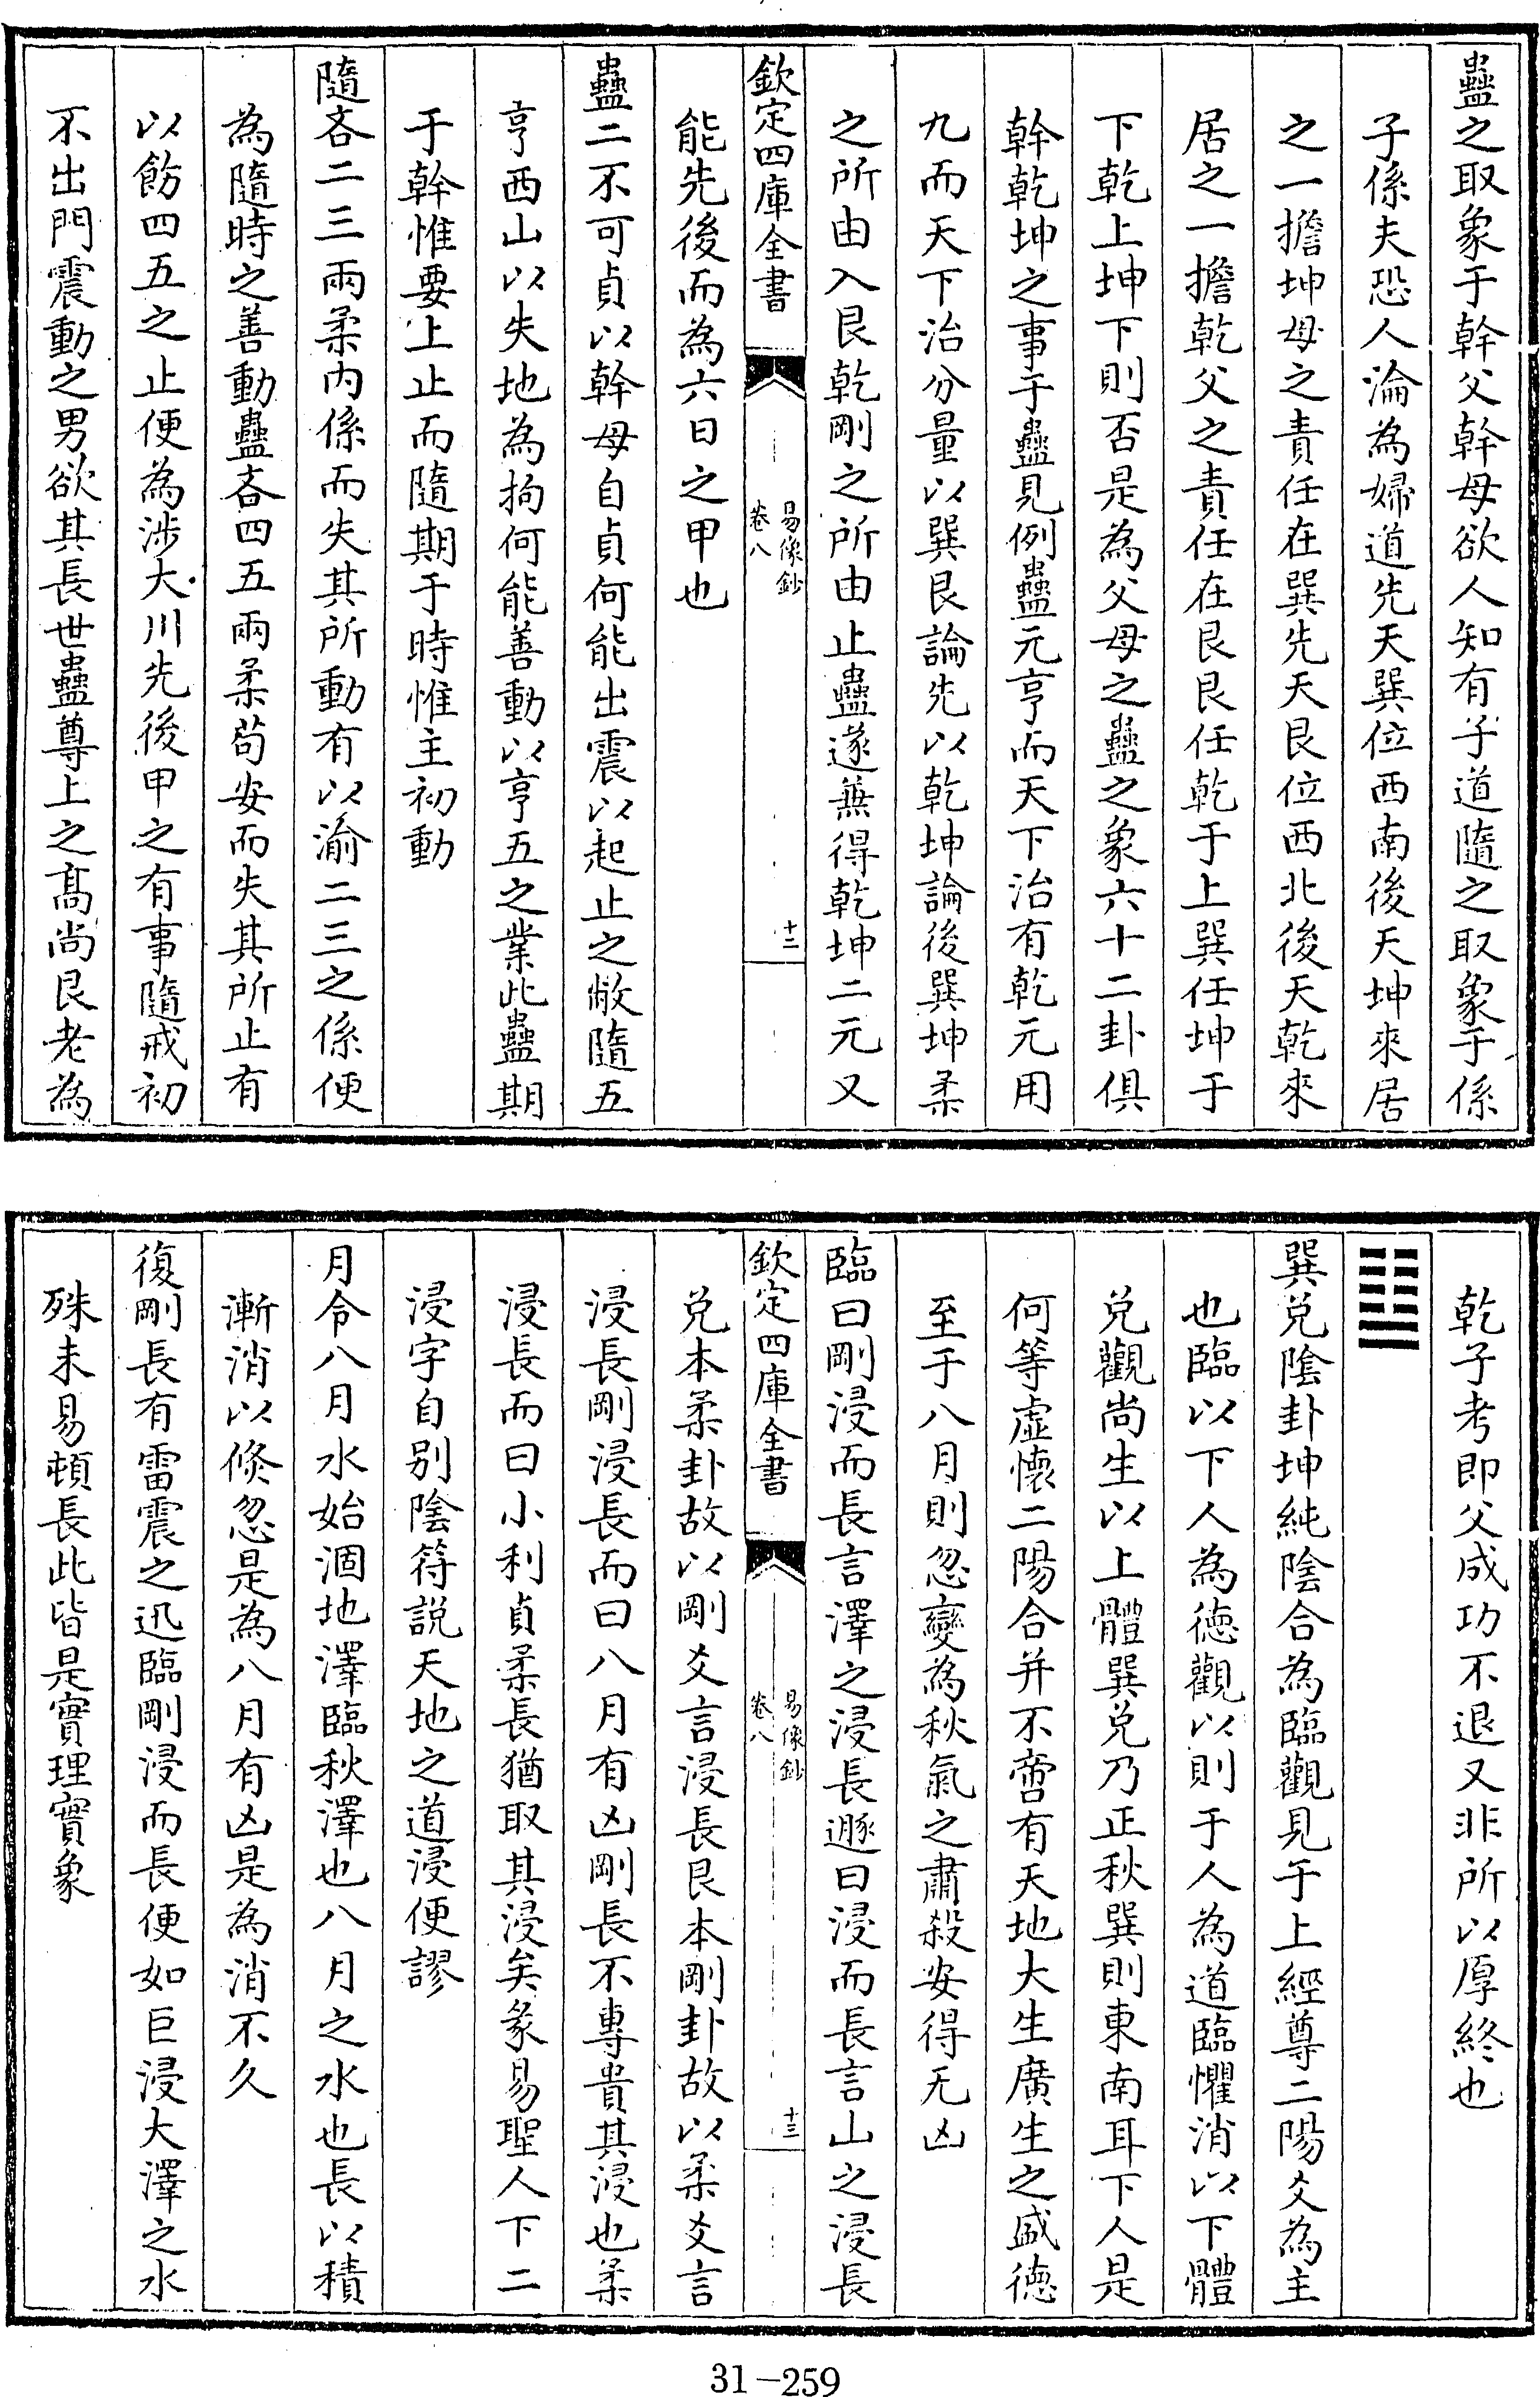 蠱之取象于幹父幹母欲人知有子道隨之取象于係
子係夫恐人淪為婦道先天巽位西南後天坤來居
之一擔坤母之責任在巽先天艮位西北後天乾來
居之一擔乾父之責任在艮艮任乾于上巽任坤于
下乾上坤下則否是為父母之蠱之象六十二卦俱
幹乾坤之事于蠱見例蠱元亨而天下治有乾元用
九而天下治分量以巽艮論先以乾坤論後巽坤柔
之所由入艮乾剛之所由止蠱遂無得乾坤二元又
欽定四庫全書
易像鈔
卷八
十二
能先後而為六日之甲也
蠱二不可貞以幹母自貞何能出震以起止之敝隨五
亨西山以失地為拘何能善動以亨五之業此蠱期
于幹惟要上止而隨期于時惟主初動
隨吝二三兩柔內係而失其所動有以渝二三之係便
為隨時之善動蠱吝四五兩柔苟安而失其所止有
以飭四五之止便為涉大川先後甲之有事隨戒初
不出門震動之男欲其長世蠱尊上之高尚艮老為
乾子考即父成功不退又非所以厚終也
巽兌陰卦坤純陰合為臨觀見于上經尊二陽爻為主
也臨以下人為德觀以則于人為道臨懼消以下體
兌觀尚生以上體巽兌乃正秋巽則東南耳下人是
何等虛懷二陽合并不啻有天地大生廣生之盛德
至于八月則忽變為秋氣之肅殺安得无凶
臨曰剛浸而長言澤之浸長遯曰浸而長言山之浸長
欽定四庫全書
易像鈔
卷八
十三
兌本柔卦故以剛爻言浸長艮本剛卦故以柔爻言
浸長剛浸長而曰八月有凶剛長不專貴其浸也柔
浸長而曰小利貞柔長猶取其浸矣彖易聖人下二
浸字自別陰符說天地之道浸便謬
月令八月水始涸地澤臨秋澤也八月之水也長以積
漸消以倏忽是為八月有凶是為消不久
復剛長有雷震之迅臨剛浸而長便如巨浸大澤之水
殊未易頓長此皆是實理實象
31-259